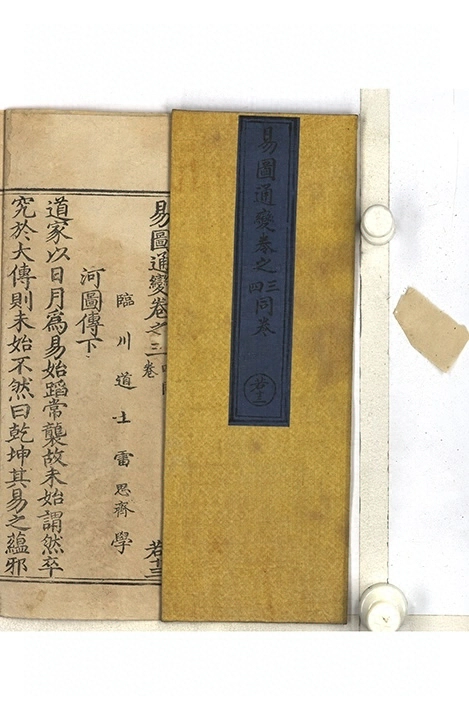 易圖通變卷之三四同卷
若十二
易圖通變卷之三
卷
若十二
臨川道士雷思齊學
河圖傳下
道家以日月爲易始蹈常襲故未始謂然卒
究於大傳則未始不然曰乾坤其易之蘊邪